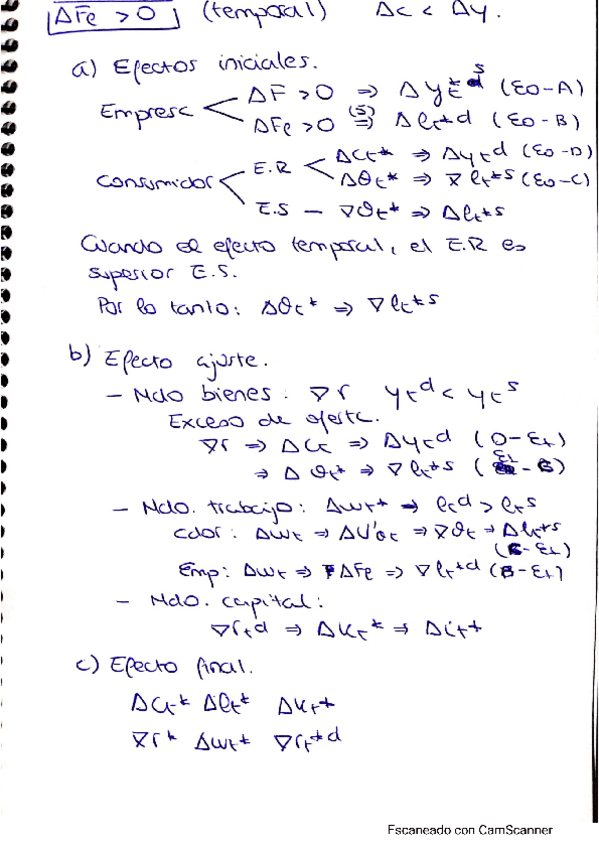 ΔFe > 0 (temporal) Δc < Δy.
a) Efectos iniciales.
Empresa < ΔF > 0 ⇒ Δyt*s (E0-A)
ΔFe > 0 (S) ⇒ Δlt*d (E0-B)
Consumidor < E.R < Δct* ⇒ Δytd (E0-D)
Δθt* ⇒ ∇lt*s (E0-C)
E.S - ∇θt* ⇒ Δlt*s
Cuando el efecto temporal, el E.R es
superior E.S.
Por lo tanto: Δθt* ⇒ ∇lt*s
b) Efecto ajuste.
- Mdo bienes: ∇r ytd < yts
Exceso de oferta.
∇r ⇒ Δct ⇒ Δytd (D-E1)
⇒ Δθt* ⇒ ∇lt*s
- Mdo. trabajo: Δwt* ⇒ ltd > lts
cdor: Δwt ⇒ ΔU'θt ⇒ ∇θt ⇒ Δlt*s
(C-E1)
Emp: Δwt ⇒ ΔFe ⇒ ∇lt*d (B-E1)
- Mdo. capital:
∇rtd ⇒ Δkt* ⇒ Δit*
c) Efecto final.
Δct* Δlt* Δkt*
∇r* Δwt* ∇rt*d
Escaneado con CamScanner